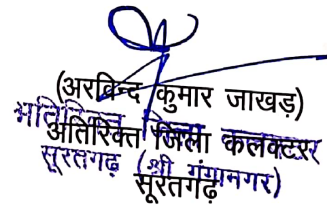 (अरविन्द कुमार जाखड़)
अतिरिक्त जिला कलक्टर
अतिरिक्त जिला कलक्टर
सूरतगढ़ (श्री गंगानगर)
सूरतगढ़